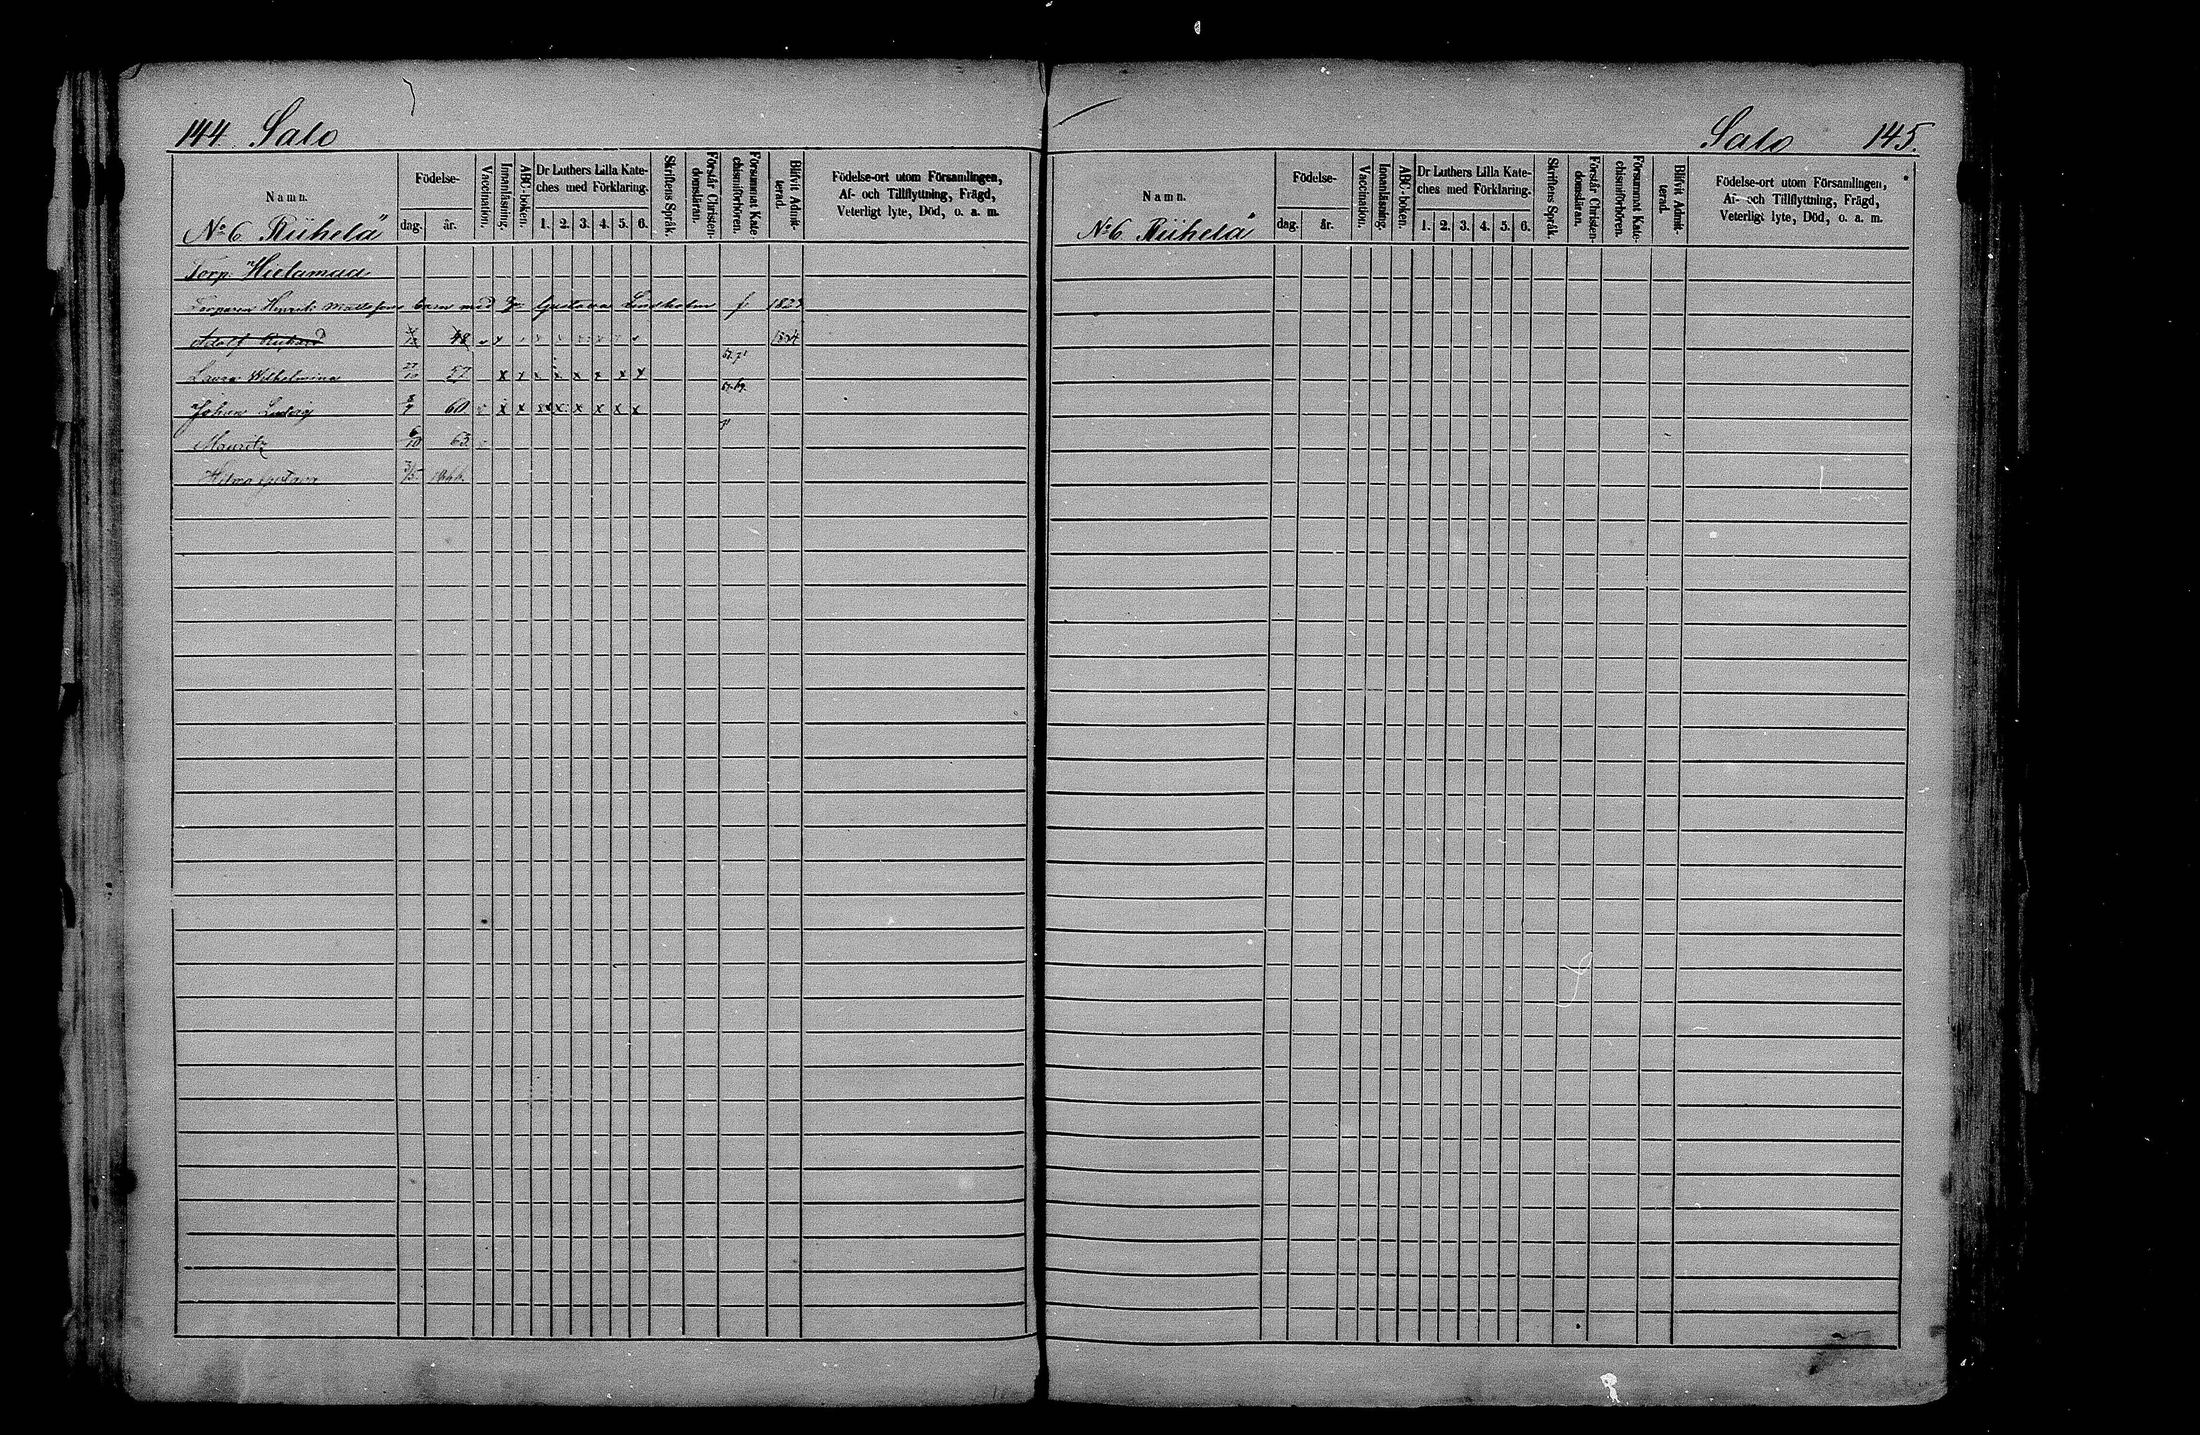 144. Salo
Namn. Födelse- dag. år. Vaccination. Innanläsning. ABC-boken. Dr Luthers Lilla Kateches med Förklaring. 1. 2. 3. 4. 5. 6. Skriftens Språk. Förstår Christendomsläran. Försummat Katechismiförhören. Blifvit Admitterad. Födelse-ort utom Församlingen, Af- och Tillflyttning, Frägd, Veterligt lyte, Död, o. a. m.
No 6 Riihelä
Torp. Hietamaa
Torparen Henrik Mattssons barn med Gustava Lindholm f. 1823
Adolf Rickard 48 x
Laura Wilhelmina 27/10 57 x x x x x x x x 67.71
Johan Ludvig 60 x x x x x x x x 67.69.
Mauritz 6/10 63
Hilma Gustava 3/5 1866.
Salo 145.
Namn. Födelse- dag. år. Vaccination. Innanläsning. ABC-boken. Dr Luthers Lilla Kateches med Förklaring. 1. 2. 3. 4. 5. 6. Skriftens Språk. Förstår Christendomsläran. Försummat Katechismiförhören. Blifvit Admitterad. Födelse-ort utom Församlingen, Af- och Tillflyttning, Frägd, Veterligt lyte, Död, o. a. m.
No 6 Riihelä